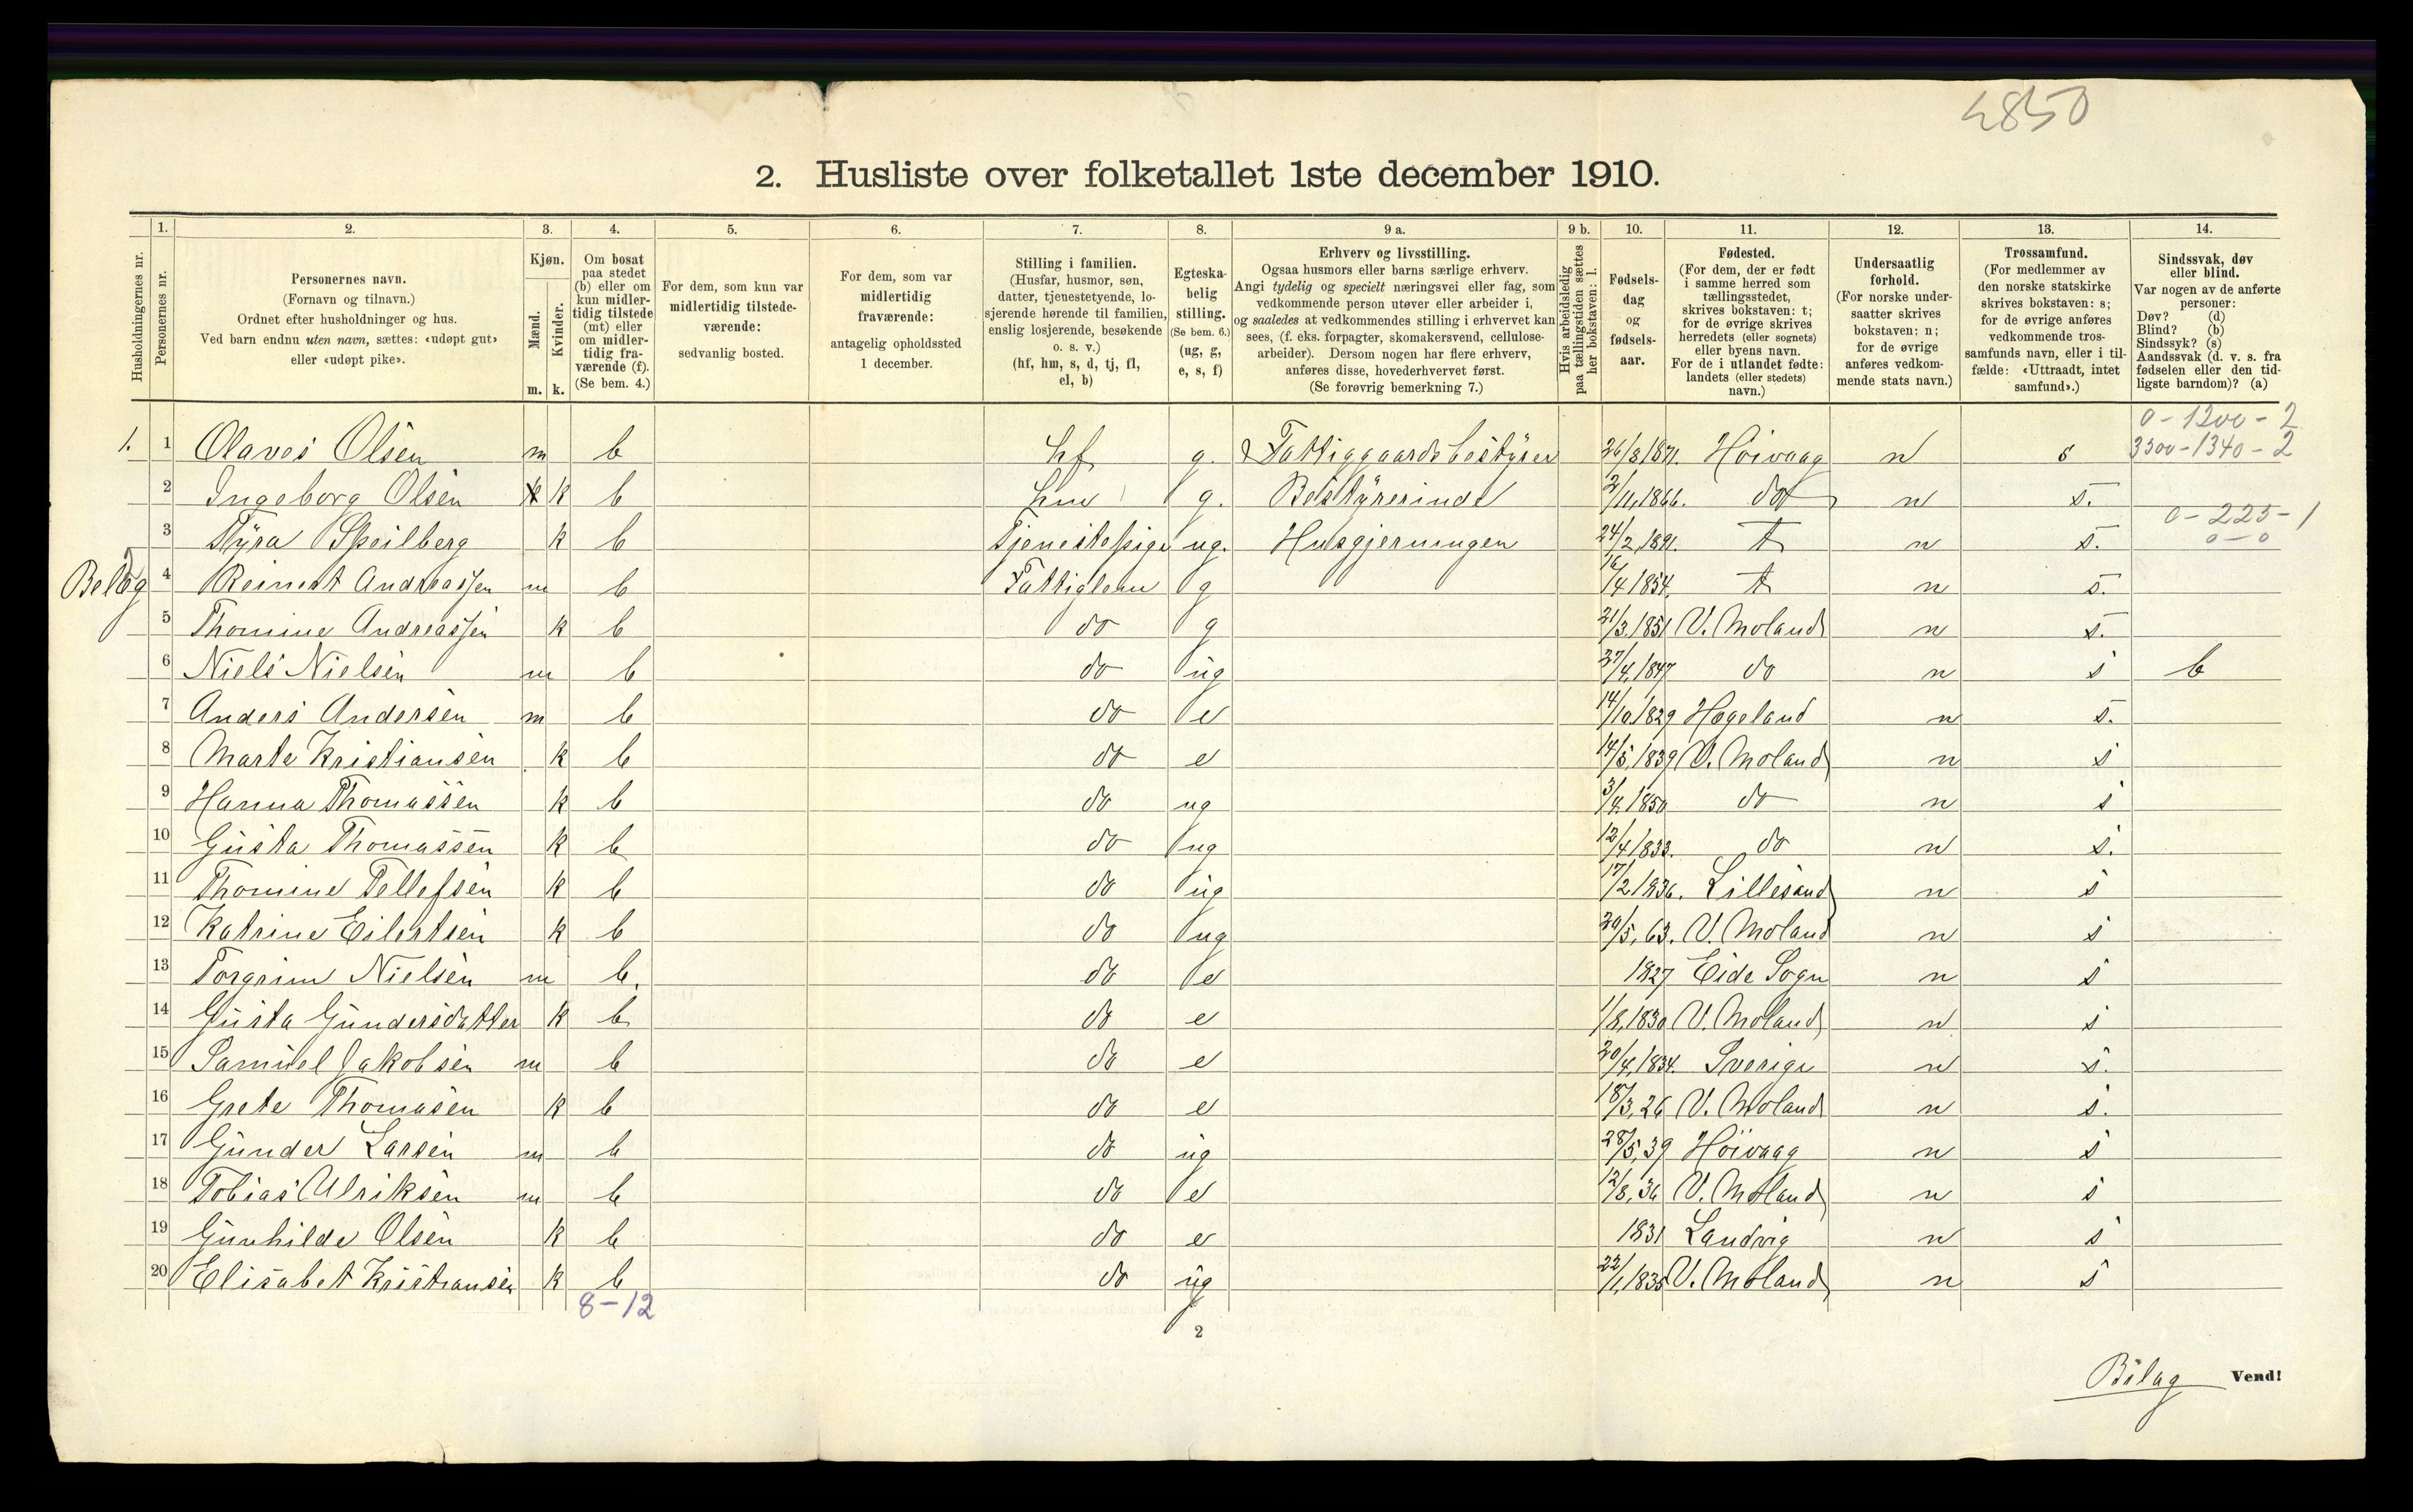 4850
2. Husliste over folketallet 1ste december 1910.
Husholdningernes nr.
1. Personernes nr.
2. Personernes navn.
(Fornavn og tilnavn.)
Ordnet efter husholdninger og hus.
Ved barn endnu uten navn, sættes: «udøpt gut»
eller «udøpt pike».
3. Kjøn.
Mænd. m.
Kvinder. k.
4. Om bosat
paa stedet
(b) eller om
kun midler-
tidig tilstede
(mt) eller
om midler-
tidig fra-
værende (f).
(Se bem. 4.)
5. For dem, som kun var
midlertidig tilstede-
værende:
sedvanlig bosted.
6. For dem, som var
midlertidig
fraværende:
antagelig opholdssted
1 december.
7. Stilling i familien.
(Husfar, husmor, søn,
datter, tjenestetyende, lo-
sjerende hørende til familien,
enslig losjerende, besøkende
o. s. v.)
(hf, hm, s, d, tj, fl,
el, b)
8. Egteska-
belig
stilling.
(Se bem. 6.)
(ug, g,
e, s, f)
9 a. Erhverv og livsstilling.
Ogsaa husmors eller barns særlige erhverv.
Angi tydelig og specielt næringsvei eller fag, som
vedkommende person utøver eller arbeider i,
og saaledes at vedkommendes stilling i erhvervet kan
sees, (f. eks. forpagter, skomakersvend, cellulose-
arbeider). Dersom nogen har flere erhverv,
anføres disse, hovederhvervet først.
(Se forøvrig bemerkning 7.)
9 b. Hvis arbeidsledig
paa tællingstiden sættes
her bokstaven: l.
10. Fødsels-
dag
og
fødsels-
aar.
11. Fødested.
(For dem, der er født
i samme herred som
tællingsstedet,
skrives bokstaven: t;
for de øvrige skrives
herredets (eller sognets)
eller byens navn.
For de i utlandet fødte:
landets (eller stedets)
navn.)
12. Undersaatlig
forhold.
(For norske under-
saatter skrives
bokstaven: n;
for de øvrige
anføres vedkom-
mende stats navn.)
13. Trossamfund.
(For medlemmer av
den norske statskirke
skrives bokstaven: s;
for de øvrige anføres
vedkommende tros-
samfunds navn, eller i til-
fælde: «Uttraadt, intet
samfund».)
14. Sindssvak, døv
eller blind.
Var nogen av de anførte
personer:
Døv? (d)
Blind? (b)
Sindssyk? (s)
Aandssvak (d. v. s. fra
fødselen eller den tid-
ligste barndom)? (a)
0 - 1200 - 2
1. 1 Olaves Olsen m b hf g. Fattiggaardsbestyrer 26/3 1871. Höivaag n s 3300-1340-2
2 Ingeborg Olsen k b hm g. Bestyrerinde 2/11, 1866. do n s.
0 - 225 - 1
3 Thyra Speilberg k b Tjenestepige ug. Husgjerningen 24/2, 1891. t n s. 0-0
Belæg 4 Reinert Andreassen m b Fattiglem g 16/4 1854. t n s.
5 Thomine Andreassen k b do g 21/3. 1851 V. Moland n s.
6 Niels Nielsen m b do ug 27/4, 1847 do n s b
7 Anders Andersen m b do e 14/10. 1829 Hægeland n s.
8 Marte Kristiansen k b do e 14/5, 1839 V. Moland n s
9 Hanna Thomassen k b do ug 3/4. 1850 do n s
10 Gusta Thomassen k b do ug 12/4 1833. do n s.
11 Thomine Tellefsen k b do ug 17/2 1836. Lillesand n s
12 Katrine Eilertsen k b do ug 20/5, 63. V. Moland n s
13 Torgrim Nielsen m b. do e 1827 Eide Sogn n s
14 Gusta Gundersdatter k b do e 1/8, 1830 V. Moland n s
15 Samuel Jakobsen m b do e 20/4, 1834. Sverige n s.
16 Grete Thomasen k b do e 18/3, 26 V. Moland n s.
17 Gunder Larsen m b do ug 28/5, 39 Höivaag n s
18 Tobias Ulriksen m b do e 12/8, 36 V. Moland n s
19 Gunhilde Olsen k b do e 1831 Landvig n s
20 Elisabet Kristiansen k b do ug 22/1, 1835 V. Moland n s
8-12
2
Bilag Vend!